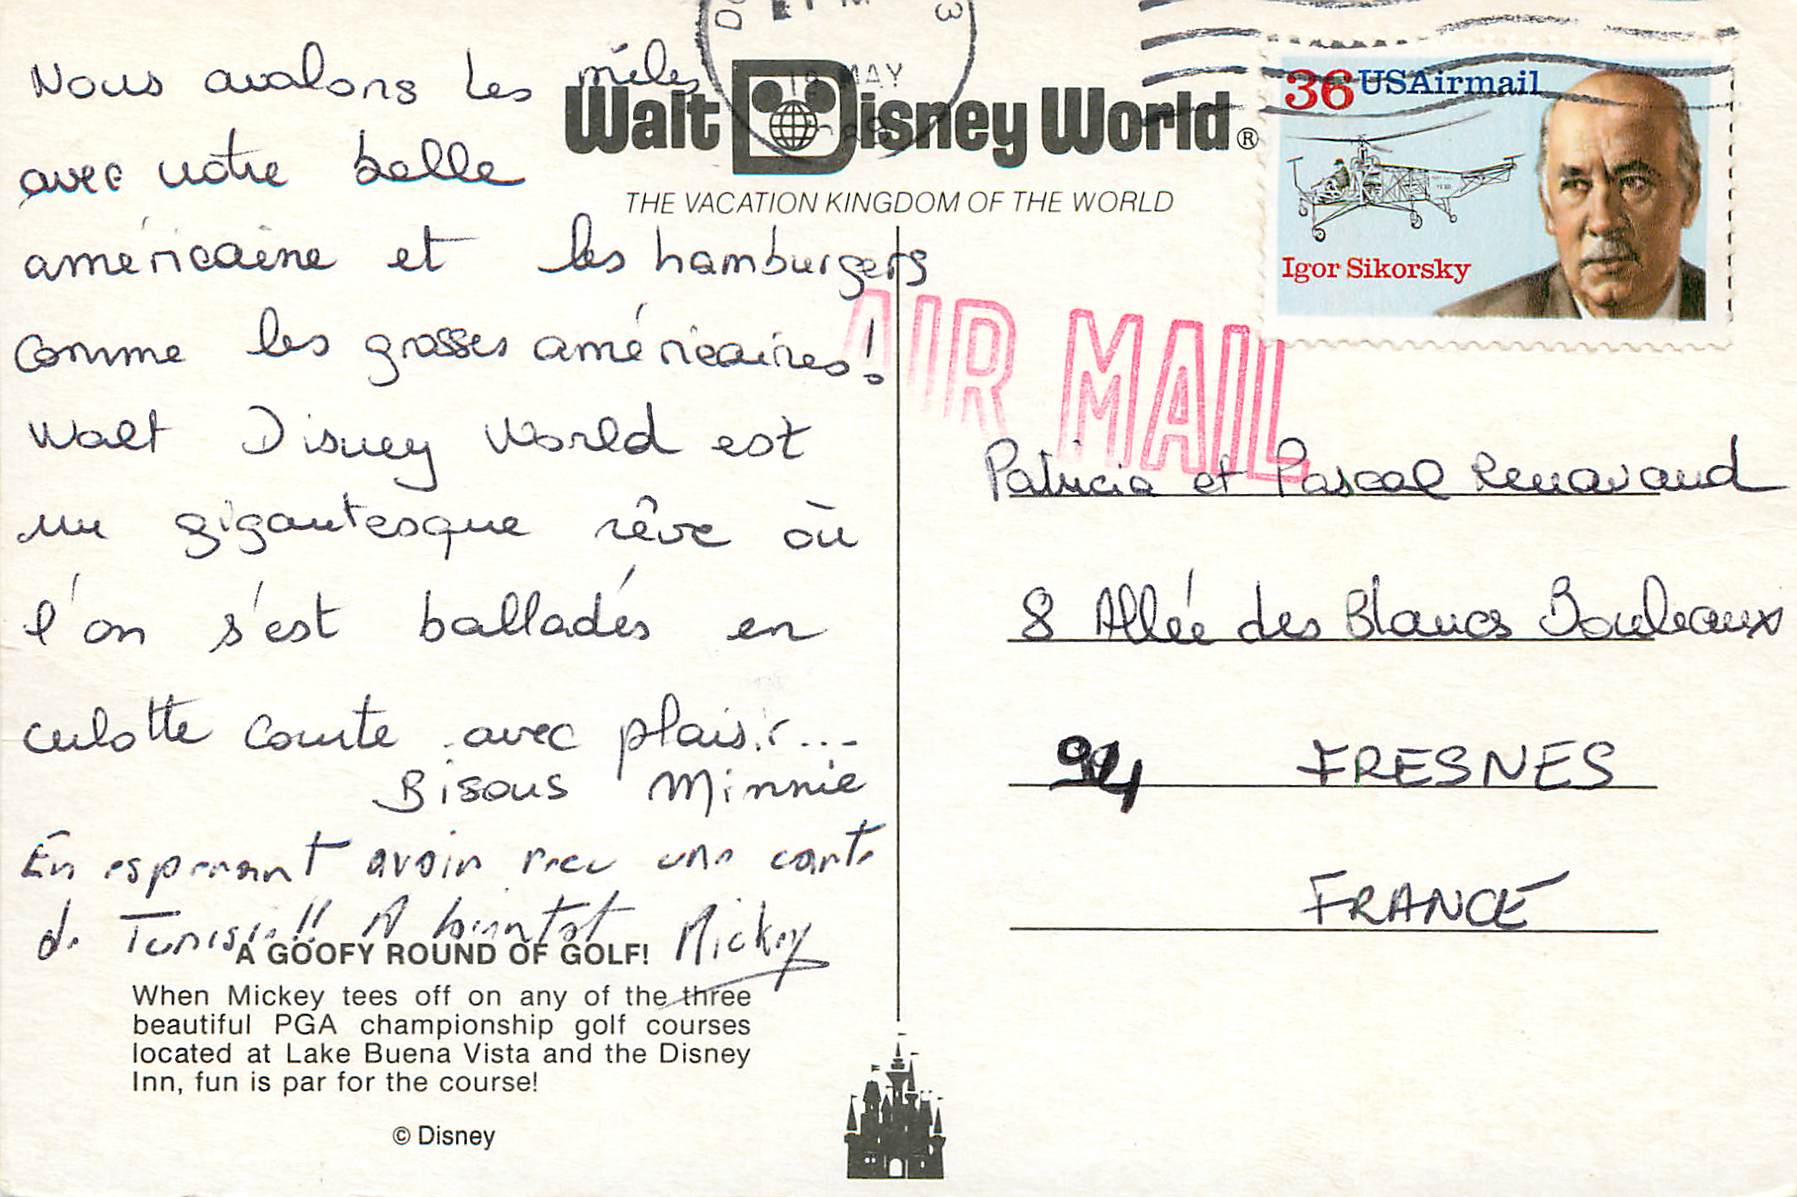 Nous avalons les miles
avec notre belle
américaine et les hamburgers
comme les grosses américaines!
Walt Disney World est
un gigantesque rêve où
l'on s'est balladés en
culotte courte avec plaisir...
Bisous Minnie
En esperant avoir recu une carte
de Tunisie!! A bientot Mickey
A GOOFY ROUND OF GOLF!
When Mickey tees off on any of the three
beautiful PGA championship golf courses
located at Lake Buena Vista and the Disney
Inn, fun is par for the course!
© Disney
Walt Disney World®
THE VACATION KINGDOM OF THE WORLD
PM
MAY
36 USAirmail
Igor Sikorsky
AIR MAIL
Patricia et Pascal
8 Allée des Blancs Bouleaux
94 FRESNES
FRANCE